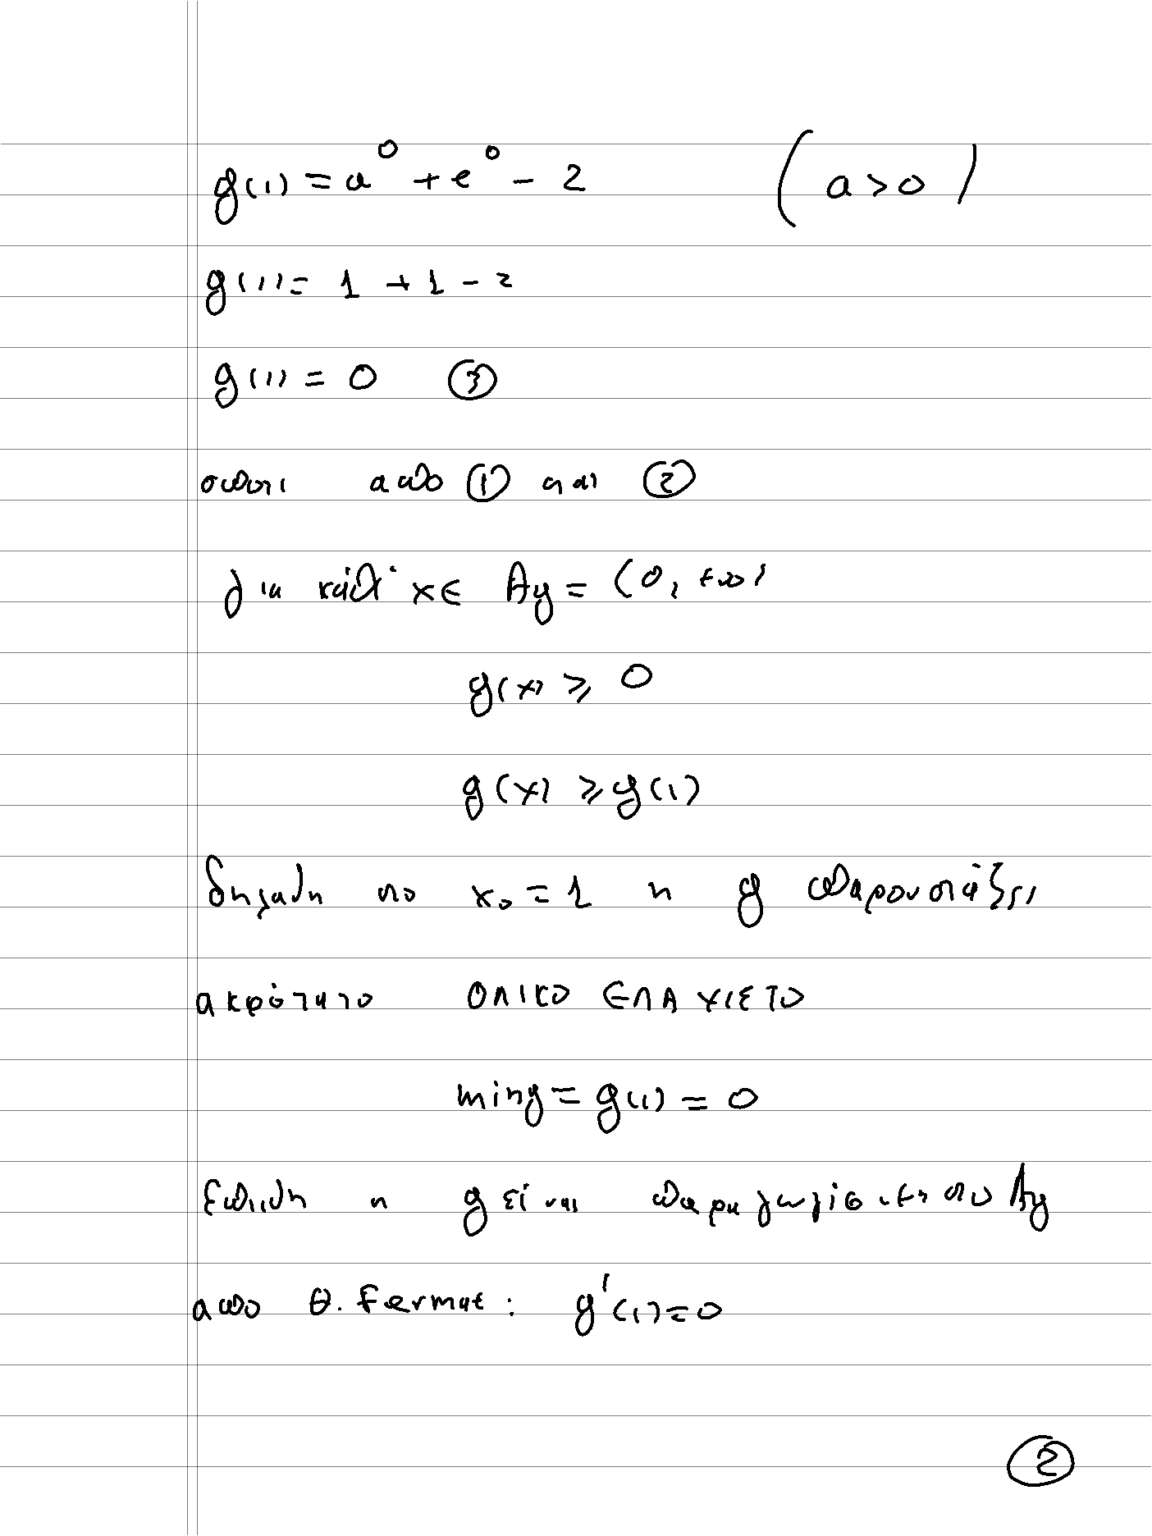 g(1) = a⁰ + e⁰ - 2 (a>0)
g(1) = 1 + 1 - 2
g(1) = 0 ③
οπότε από ① και ②
για κάθε x ∈ Ag = (0, +∞)
g(x) ⩾ 0
g(x) ⩾ g(1)
δηλαδη στο x₀ = 1 η g παρουσιάζει
ακρότατο ΟΛΙΚΟ ΕΛΑΧΙΣΤΟ
min g = g(1) = 0
Επειδη η g είναι παραγωγίσιμη στο Ag
απο θ. Fermat: g'(1) = 0
②